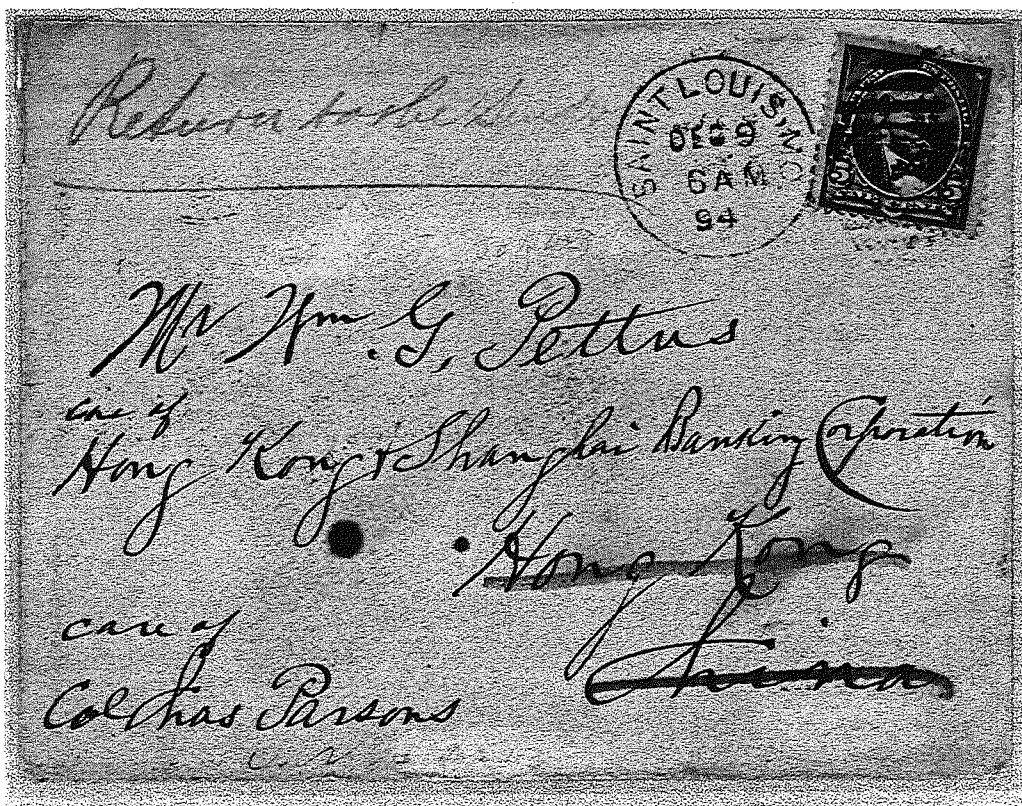 Return to the
SAINT LOUIS, MO.
DEC 9
6 AM
94
5 5
Mr Wm. G. Pettus
care of
Hong Kong & Shanghai Banking Corporation
Hong Kong
China
care of
Col Chas Parsons